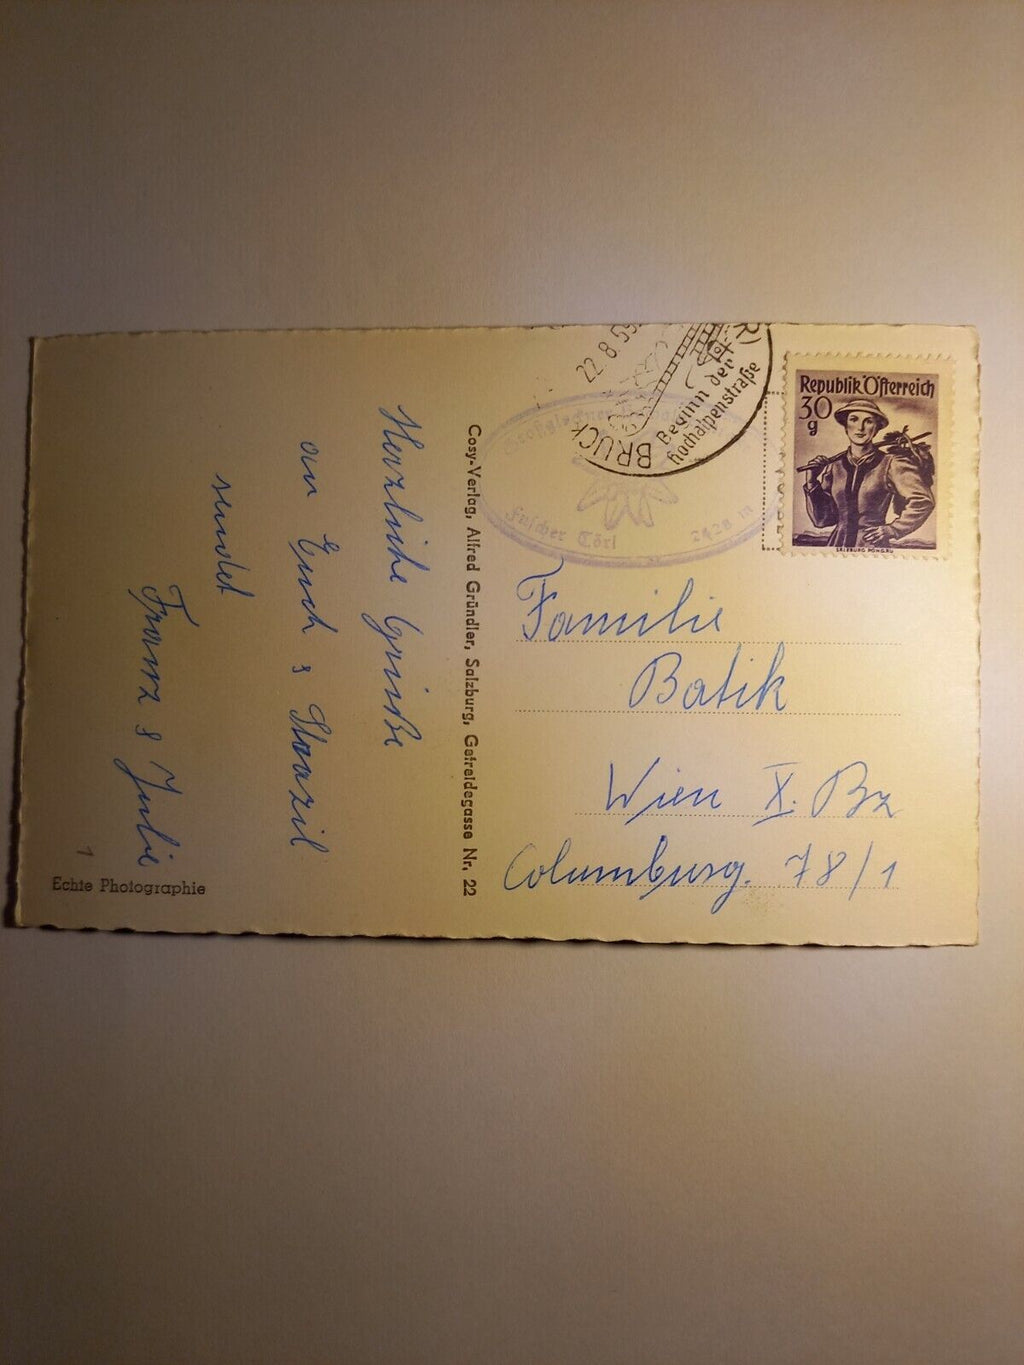 Herzliche Grüße
an Euch &
sendet
Franz & Julie
Echte Photographie
1
Cosy-Verlag, Alfred Gründler, Salzburg, Getreidegasse Nr. 22
22.8.59
BRUCK
Beginn der
Hochalpenstraße
Großglockner
Fuscher Törl 2428 m
Republik Österreich
30
g
SALZBURG PONGAU
Familie
Batik
Wien X. Bz
Columburg. 78/1